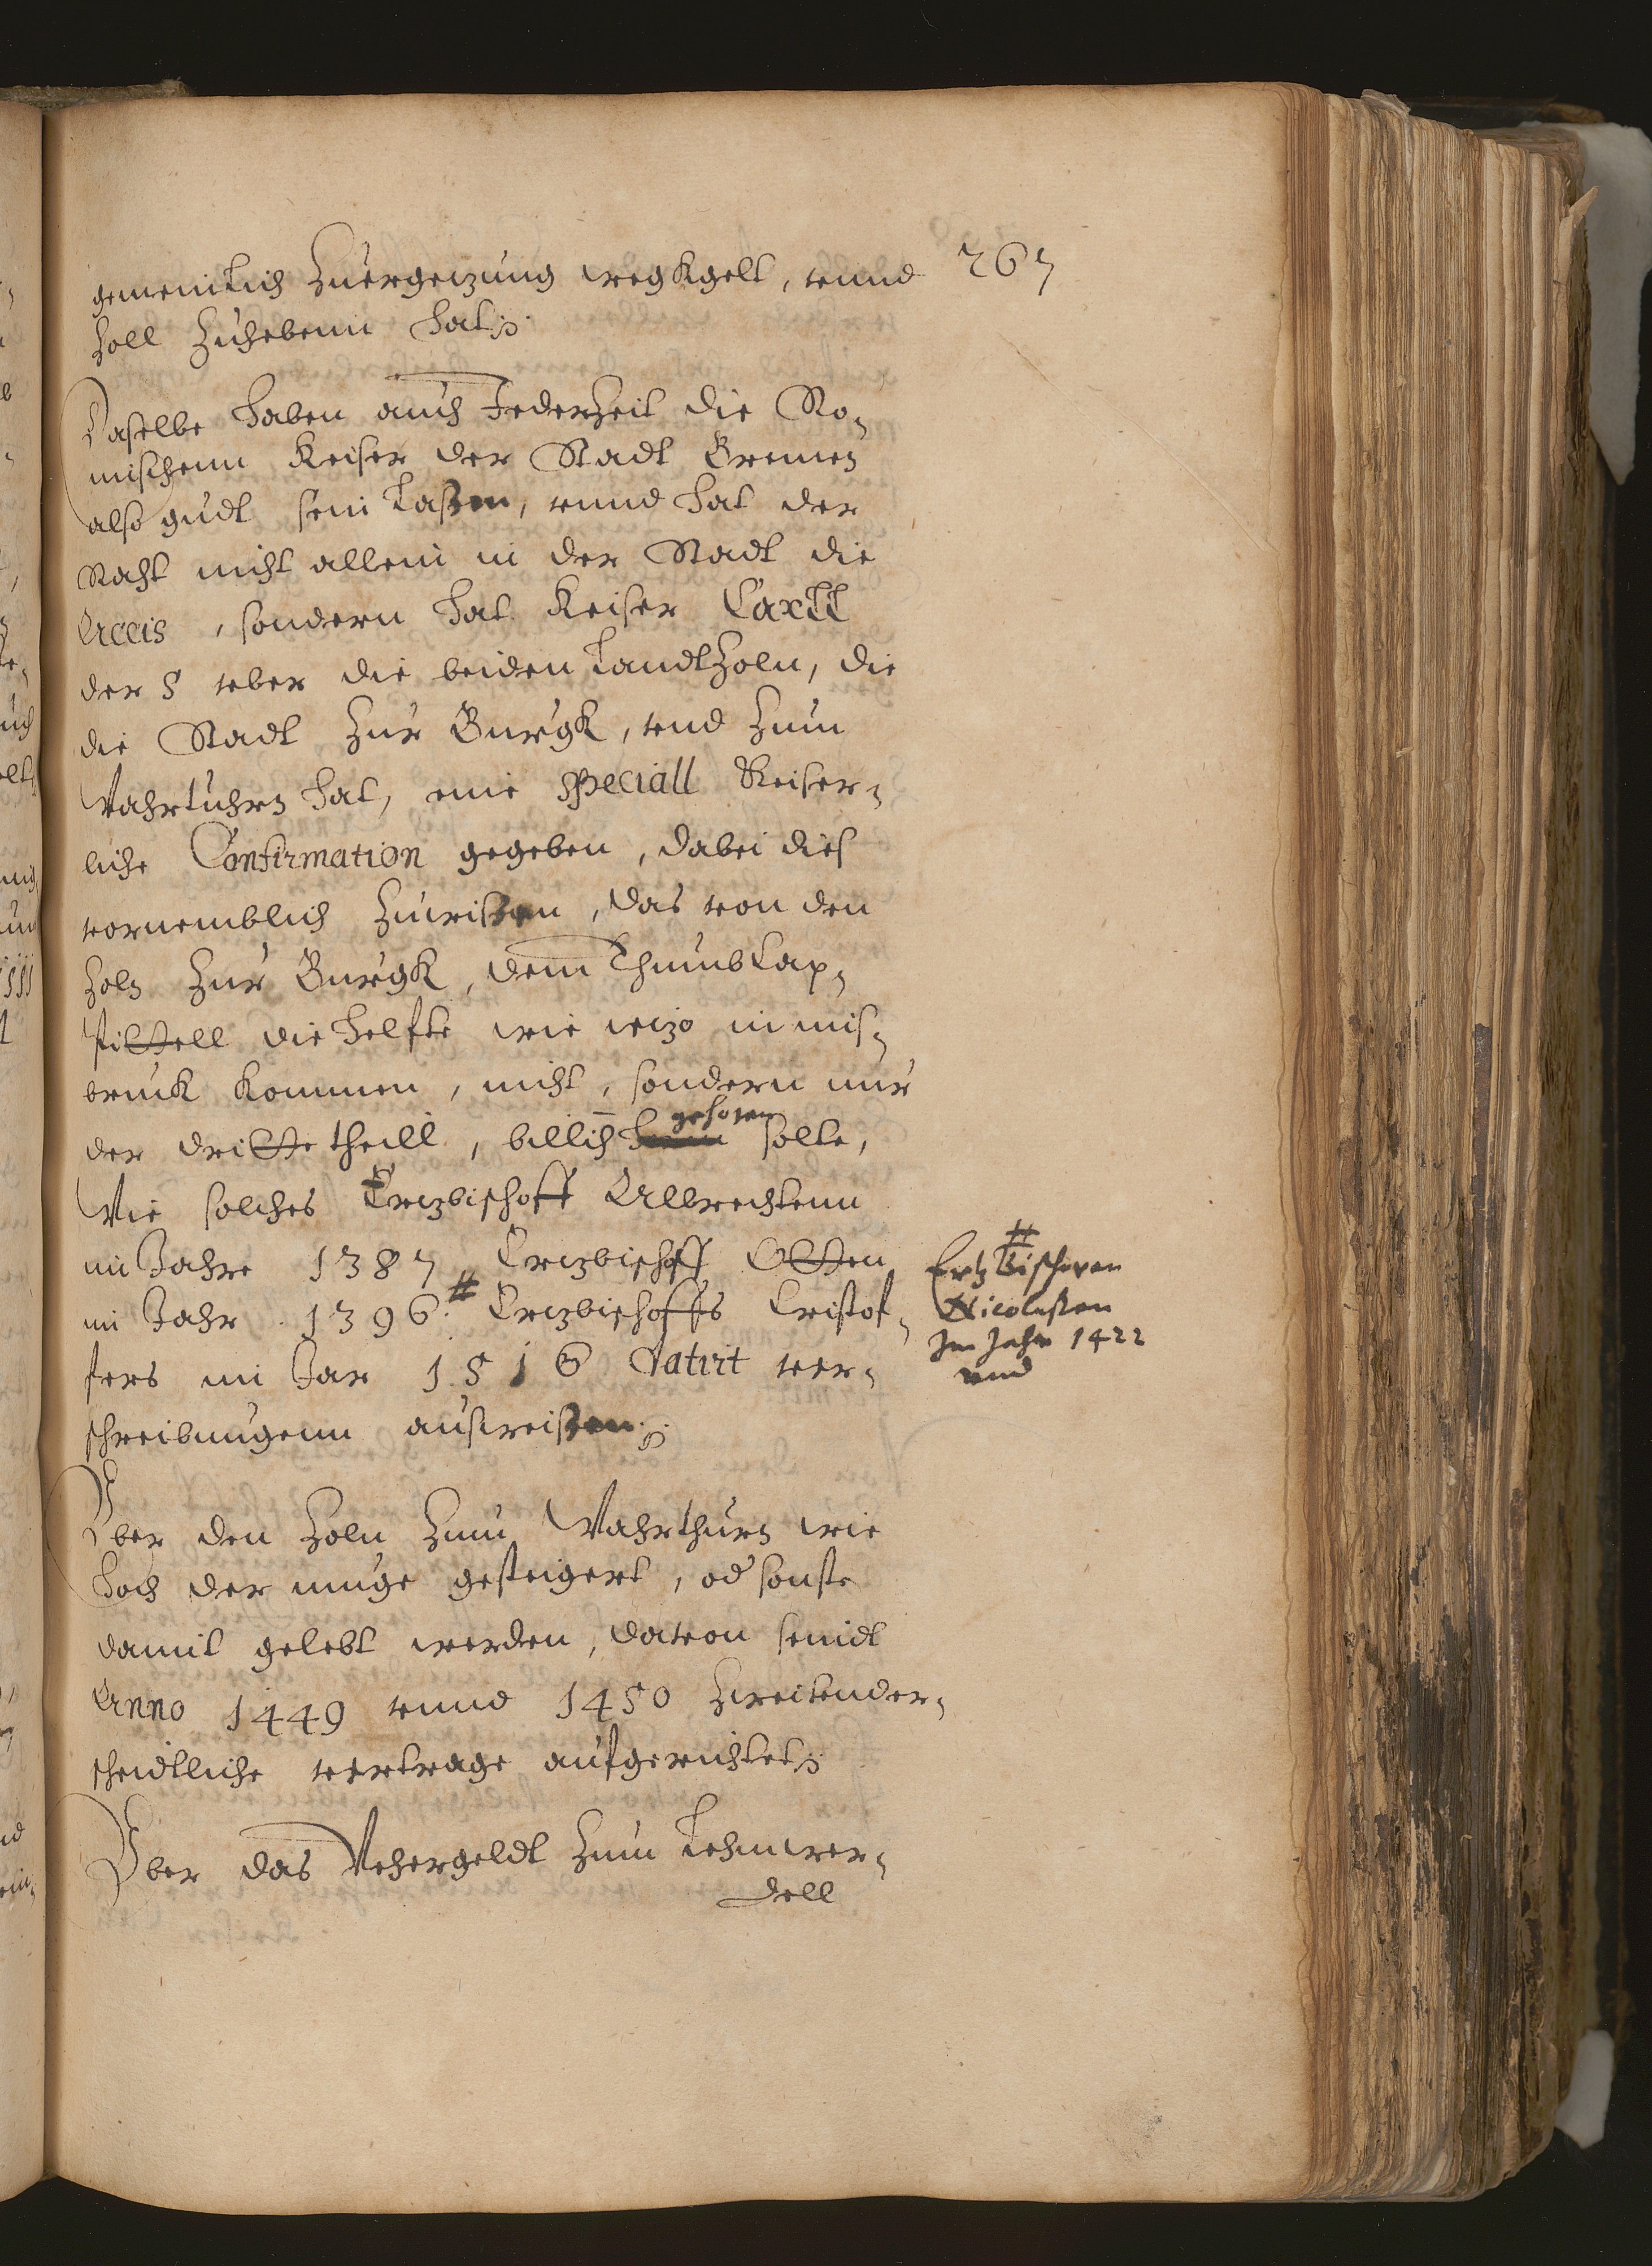 267
gemeinlich Zuergetzung wegkgelt, vnnd
Zoll Zuhebenn hat.
Daselbe haben auch Jederzeit die Ro¬
mischenn Keiser der Stadt Bremen
also gudt sein laßen, vnnd hat der
Raht nicht allein in der Stadt die
Accis, sondern hat Keiser Carll
der 5 vber die beiden landtZoln, die
die Stadt Zur Burgk, vnd Zum
Wahrtuhrn hat, eine speciall Keiser¬
liche Confirmation gegeben, dabei dies
vornemblich Zuwißen, das von den
Zoln Zur Burgk, dem Thumb Cap¬
pittell die helfte wie itzo in mis¬
bruck kommen, nicht, sondern nur
der dritte theill, billich gehoren solte,
Wie solches Ertzbischoff Albrechtenn
im Jahre 1387 Ertzbischoff Otten
im Jahr 1396. # Ertzbischoffs Cristof¬
fers im Jar 1516 datirt ver¬
schreibungenn außweißen.
# Ertzbischoven
Nicolaßen
Im Jahr 1422
vnd
Vber den Zoln Zum Wahrthurn wie
hoch der muge gesteigert, od sonste
damit gelebt werden, davon seindt
Anno 1449 vnnd 1450 Zwei vnder¬
scheidtliche vertrage aufgerichtet.
Vber das Vehergeldt Zum Lehmwer¬
dell